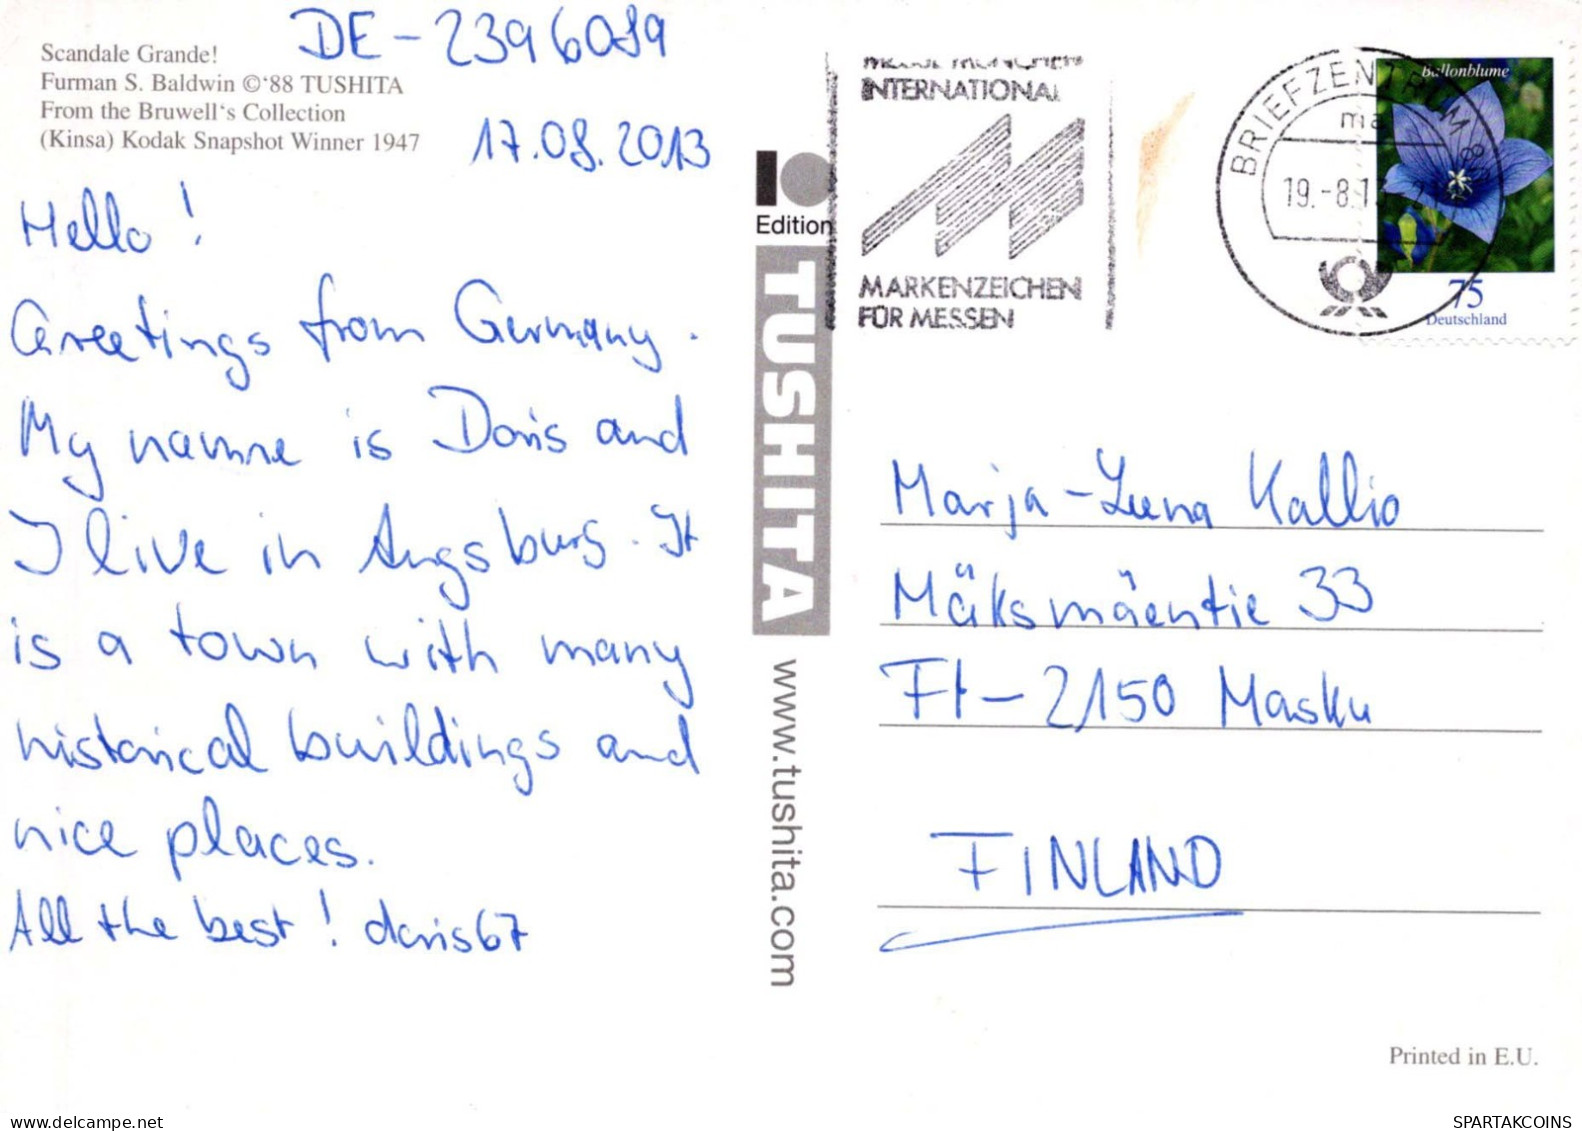 DE-2396089
Scandale Grande!
Furman S. Baldwin ©'88 TUSHITA
From the Bruwell's Collection
(Kinsa) Kodak Snapshot Winner 1947
17.08.2013
Hello!
Greetings from Germany.
My name is Doris and
I live in Augsburg. It
is a town with many
historical buildings and
nice places.
All the best! doris67
Edition
TUSHITA
www.tushita.com
INTERNATIONAL
MARKENZEICHEN
FÜR MESSEN
BRIEFZENTRUM
19.-8.1
Ballonblume
75
Deutschland
Marja-Leena Kallio
Mäksmäentie 33
FI-2150 Masku
FINLAND
Printed in E.U.
www.delcampe.net
SPARTAKCOINS